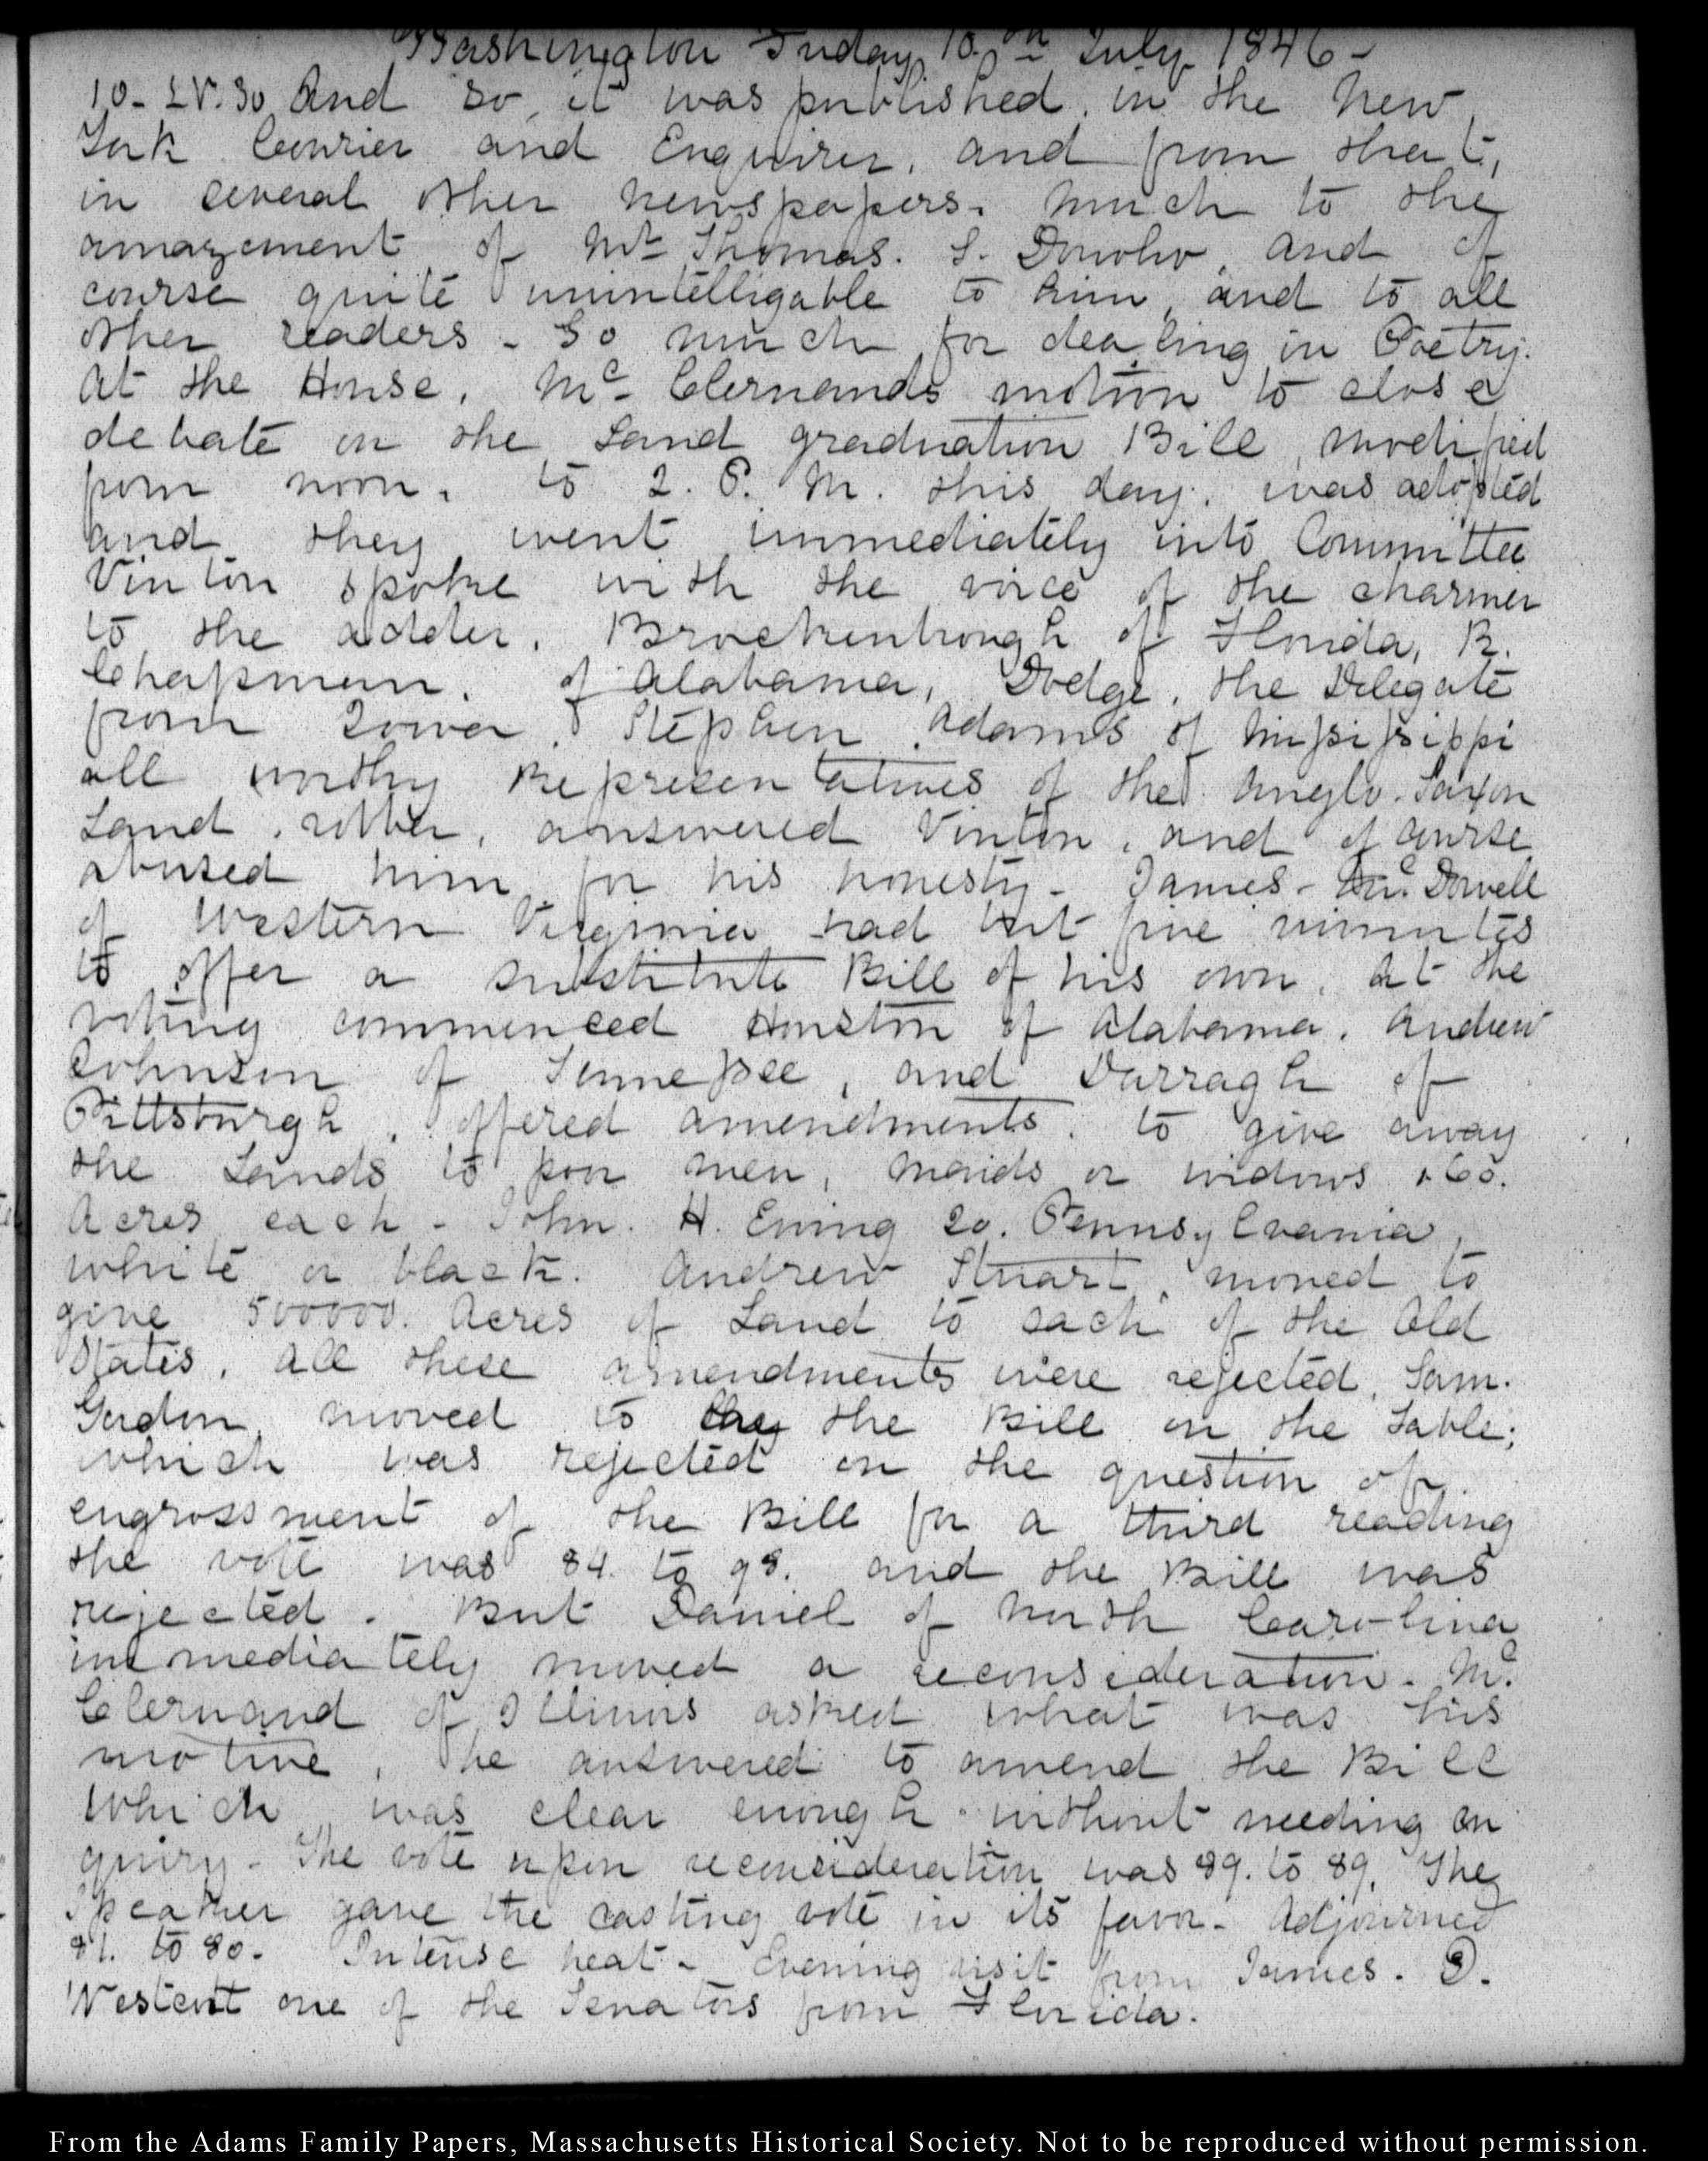 Washington Friday 10th July 1846-
10- IV.30 And so it was published, in the New
York Courier and Enquirer, and from that,
in several other newspapers. much to the
amazement of Mr Thomas. S. Donoho, and of
course quite unintelligable to him, and to all
other readers - So much for dealing in Poetry.
At the House, Mc- Clernands motion to close
debate on the Land graduation Bill, modified
from noon, to 2. P. M. this day, was adopted
and they went immediately into Committee
Vinton spoke with the voice of the charmer
to the adder. Brockenbrough of Florida, R.
Chapman, of Alabama, Dodge, the Delegate
from Iowa, Stephen Adams of Missisippi
all worthy Representatives of the Anglo-Saxon
Land, robber, answered Vinton, and of course
abused him for his honesty - James - McDowell
of Western Virginia had but five minutes
to offer a substitute Bill of his own, At the
voting commenced Houston of Alabama, Andrew
Johnson of Tennessee, and Darragh of
Pittsburgh, offered amendments, to give away
the Lands to poor men, maids or widows 160.
Acres each - John. H. Ewing 20. Pennsylvania,
white or black. Andrew Stuart, moved to
give 500000. Acres of Land to each of the Old
States, All these amendments were rejected, Sam.
Gordon moved to lay the Bill on the Table;
which was rejected on the question of
engrossment of the Bill for a third reading
the vote was 84. to 98. and the Bill was
rejected. But Daniel of North Carolina
immediately moved a reconsideration. Mc.
Clernand of Illinois asked what was his
motive, he answered to amend the Bill
which was clear enough without needing en
quiry - The vote upon reconsideration was 89. to 89. The
Speaker gave the casting vote in its favor - Adjourned
81. to 80. Intense heat - Evening visit from James. D.
Westcott one of the Senators from Florida.
From the Adams Family Papers, Massachusetts Historical Society. Not to be reproduced without permission.